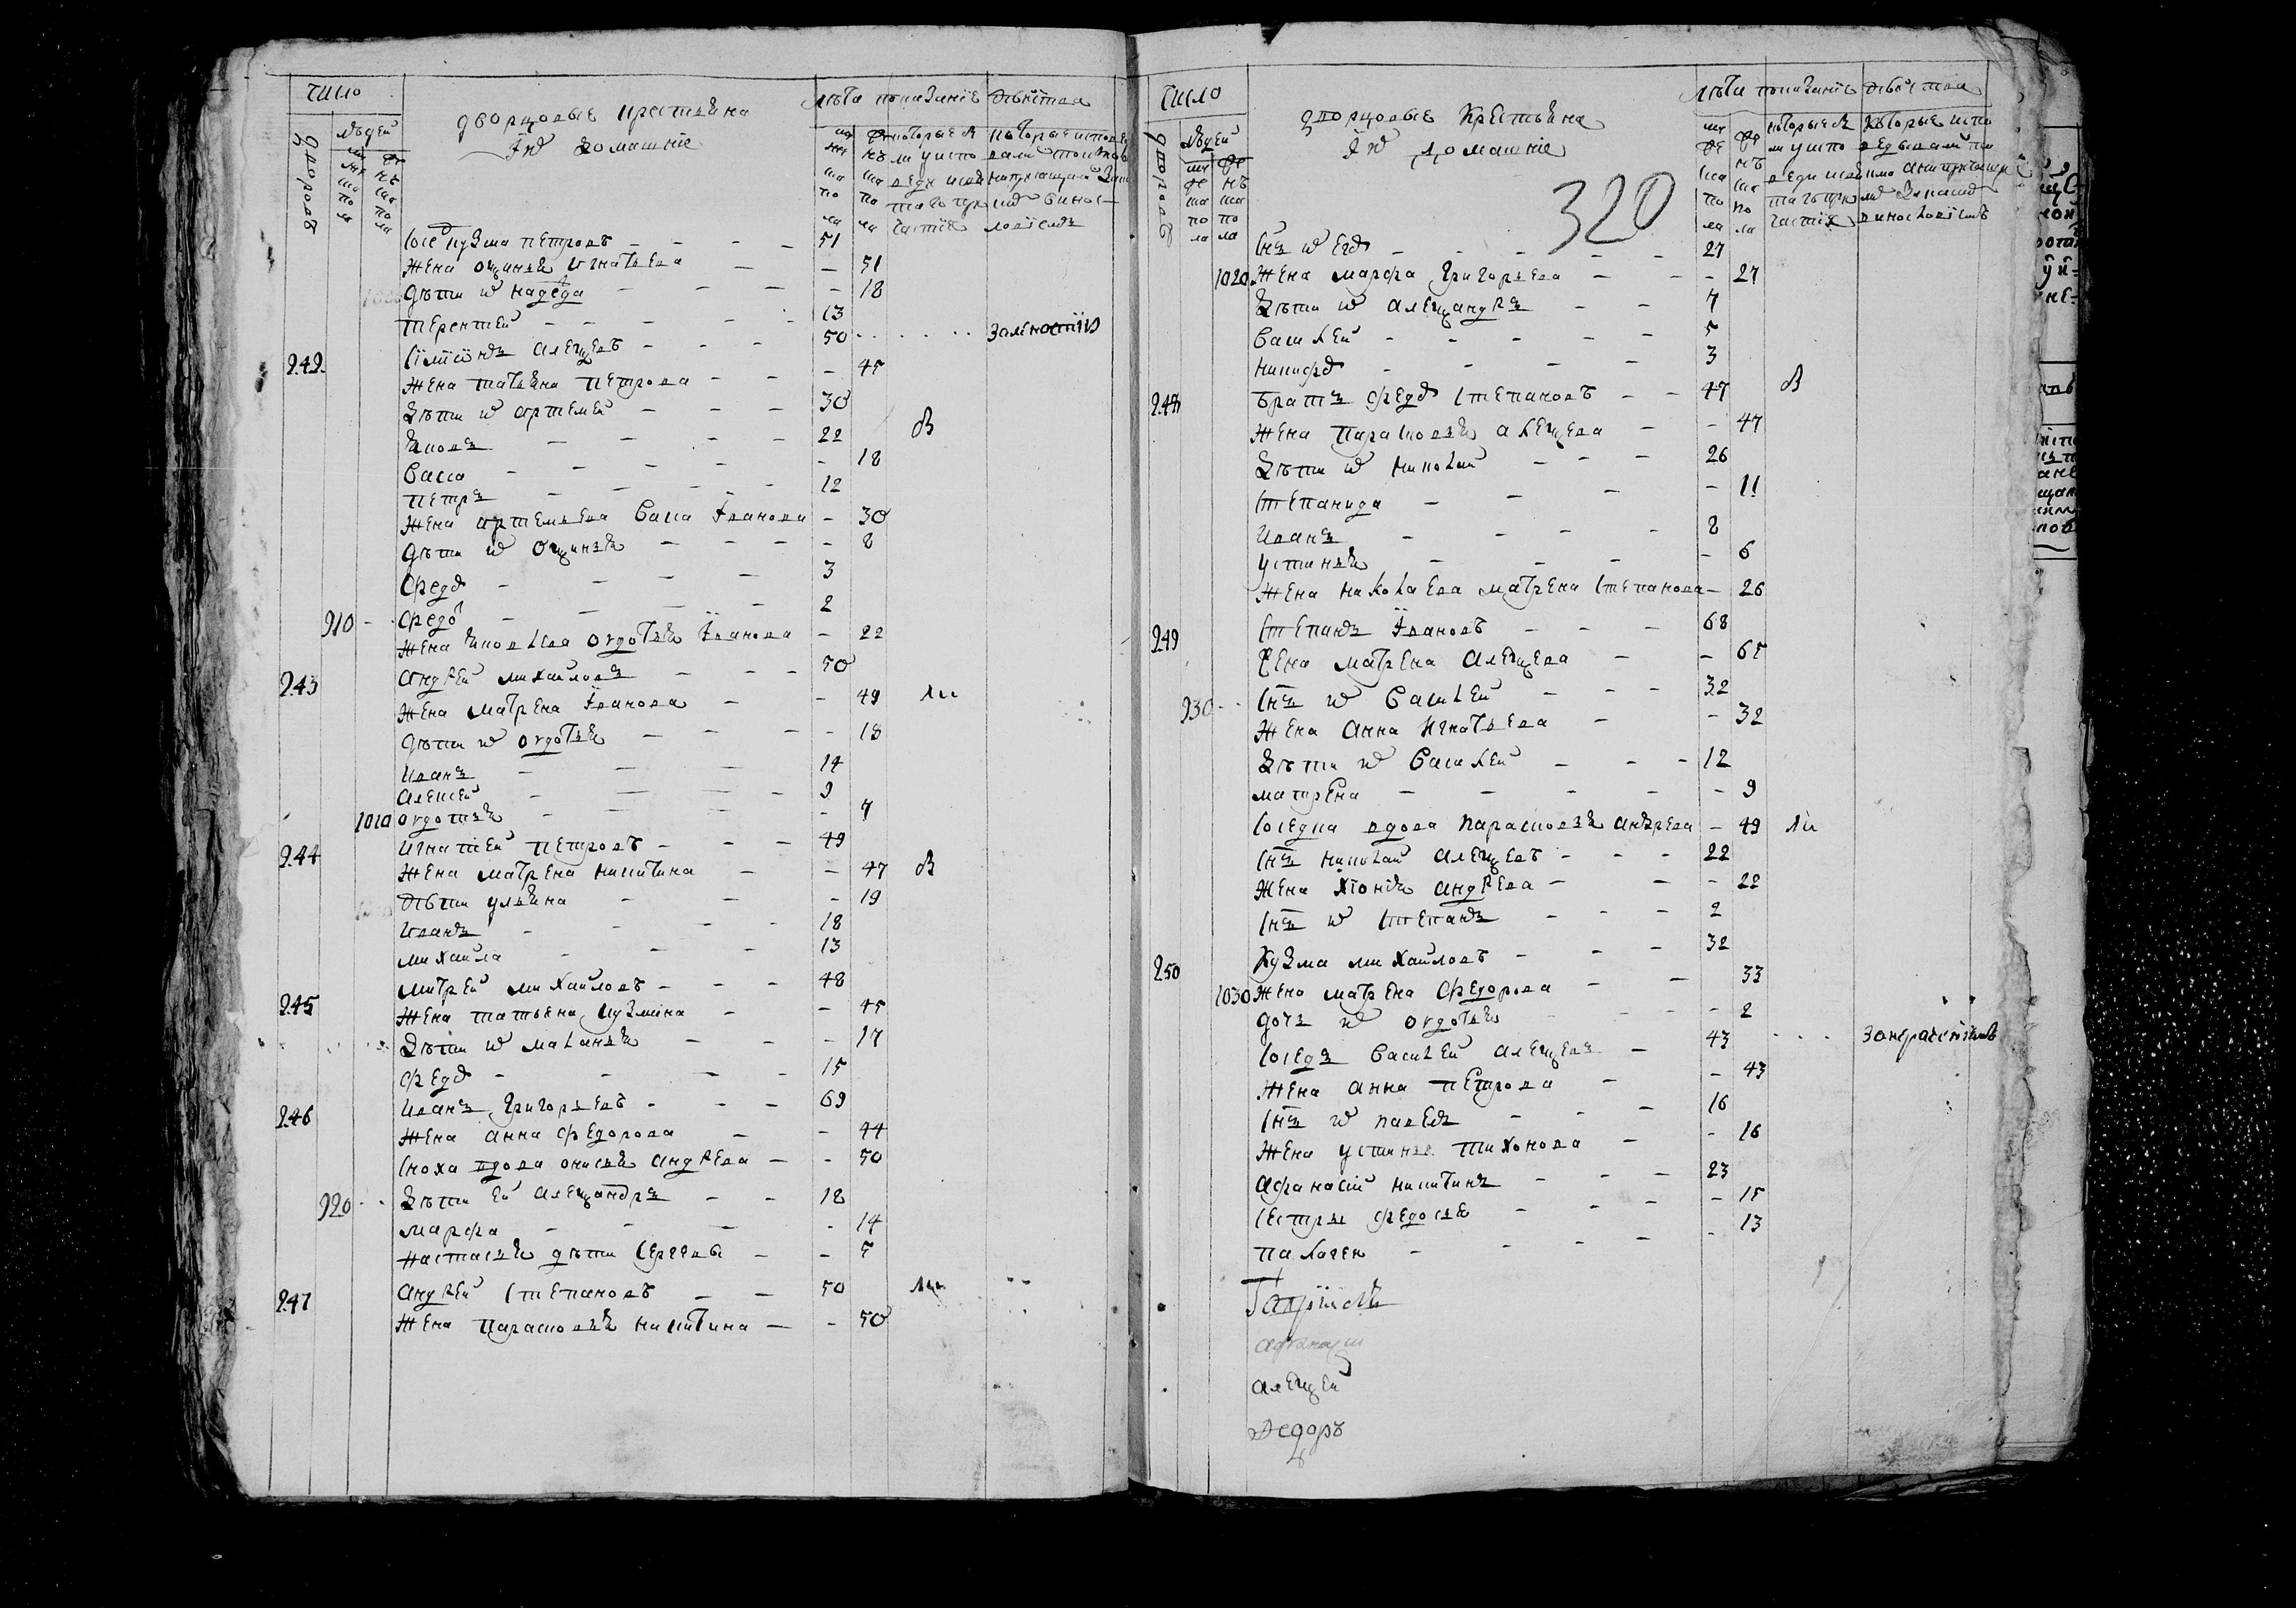 число
дворцовые крестьяня
лѣта показанїе дѣйства
дворовъ
людей
и их домашнїе
мужеска пола
женска пола
сосед кузма петровъ - - - - 51
жена оксинья игнатьева - - 51
дѣти их надежда - - - - 18
терентей - - - - - 13
242 сїмїонъ алексеевъ - - - 50 . . . . .
жена татьяна петрова - - - 45
дѣти их артемей - - - 30
яковъ - - - - 22 В
васса - - - - - 18
петръ - - - - - 12
жена артемьева васса Іванова - 30
дѣти их оксинья - - - - 8
федоръ - - - - 3
910 - федоръ - - - - 2
жена яковлева овдотья Іванова - 22
243 андрей михайловъ - - - 50
жена матрена Іванова - - 49 Ли
дѣти их овдотья - - - - 18
иванъ - - - 14
алексей - - - - 9
1010 овдотья - - - - 7
244 игнатей петровъ - - - 49
жена матрена никитина - - 47 В
дѣти ульяна - - - 19
иванъ - - - - 18
михаила - - - 13
245 митрей михайловъ - - - 48
жена татьена кузмина - - 45
дѣти их маланья - - - 17
федоръ - - - - 15
246 иванъ григорьевъ - - - 69
жена анна федорова - - 44
сноха вдова онисья андреева - - 50
920 - - дѣти ей александръ - - 18
марфа - - - - 14
настасья дѣти сергѣевы - - 5
247 андрей степановъ - - 50 Ли
жена парасковья никитина - - 50
число
дворцовые крестьяня
лѣта показанїе дѣйства
дворовъ
людей
и их домашнїе
320
снъ их егоръ - - - - - 27
1020 жена марфа григорьева - - - 27
дѣти их александръ - - 7
василей - - - - - 5
никифоръ - - - - 3
248 братъ федоръ степановъ - - 47 В
жена парасковья алексеева - - 47
дѣти их николай - - - 26
степанида - - - - 11
иванъ - - - - 8
устинья - - - - 6
жена николаева матрена степанова - 26
249 степанъ Івановъ - - - 68
жена матрена алексеева - - 65
930 - - снъ их василей - - - 32
жена анна игнатьева - - 32
дѣти их василей - - - 12
матрена - - - - - - 9
соседка вдова парасковья андреева - 49 Ли
снъ николай алексеевъ - - - 22
жена хїонїя андреева - - - 22
снъ их степанъ - - - 2
250 кузма михайловъ - - - 32
1030 жена матрена федорова - - 33
дочь их овдотья - - - - 2
соседъ василей алексеевъ - 43 . . .
жена анна петрова - - 43
снъ их павелъ - - - 16
жена устинья тихонова - - 16
афанасїй никитинъ - - - 23
сестры федосья - - - - 15
палагея - - - - - 13
афанасій
алексей
Федоръ